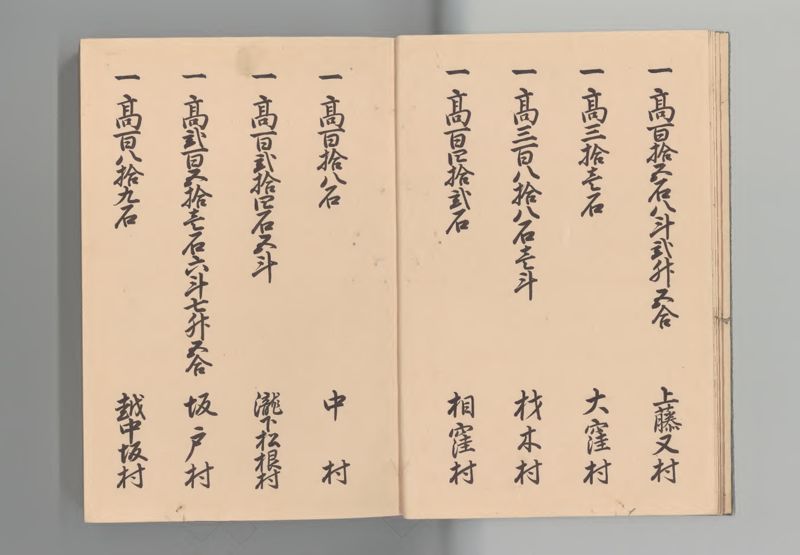 一 高百拾五石八斗弐升五合 上藤又村
一 高三拾壱石 大窪村
一 高三百八拾八石壱斗 材木村
一 高百四拾弐石 相窪村
一 高百拾八石 中村
一 高百弐拾四石五斗 瀧下松根村
一 高弐百五拾壱石六斗七升五合 坂戸村
一 高百八拾九石 越中坂村